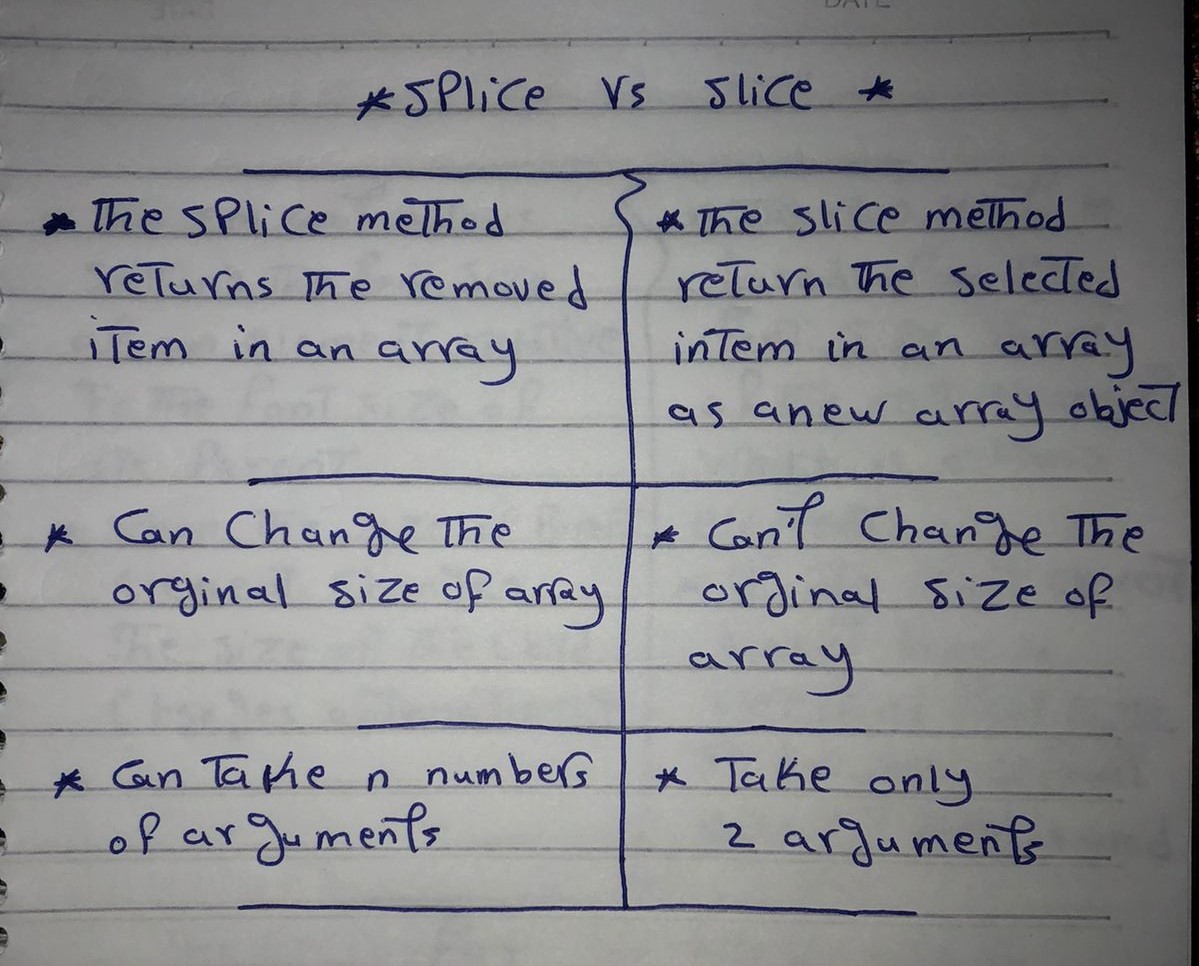 DATE
* SPlice Vs Slice *
* The SPlice method
returns The removed
iTem in an array
* The slice method
return The Selected
inTem in an array
as anew array object
* Can Change The
orginal size of array
* Can't Change The
orginal size of
array
* Can Take n numbers
of arguments
* Take only
2 arguments